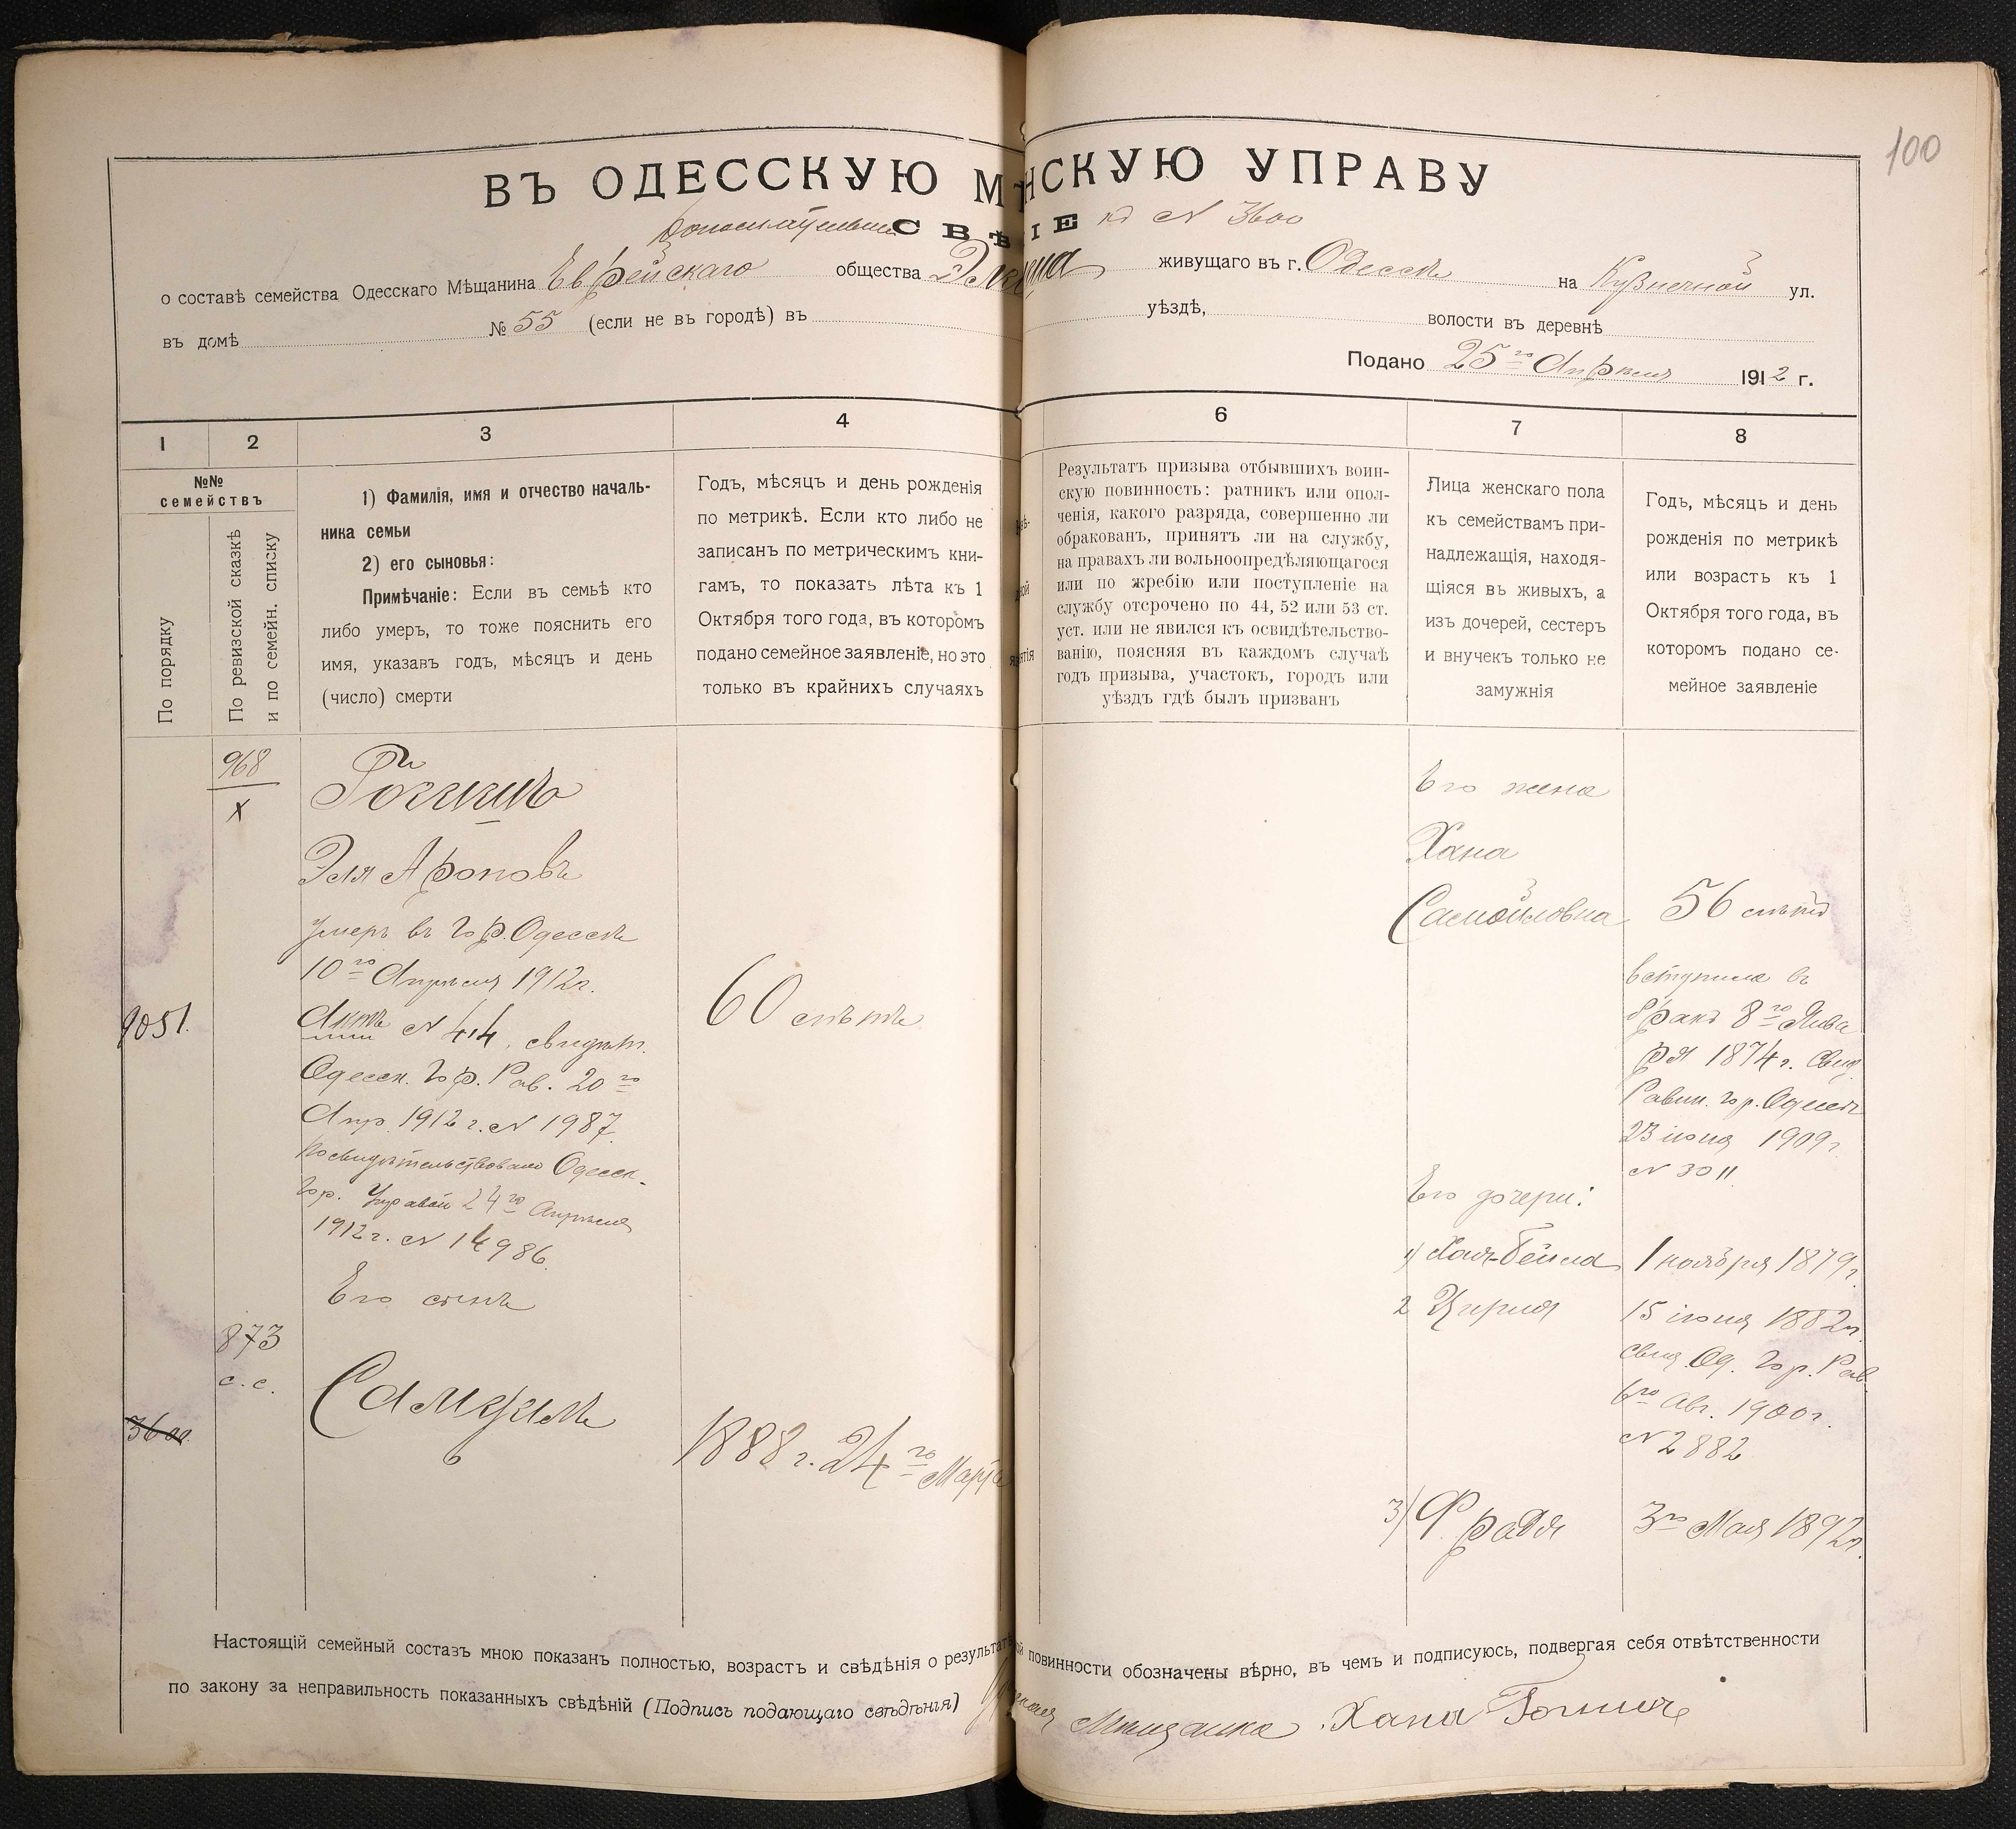 100
ВЪ ОДЕССКУЮ М НСКУЮ УПРАВУ
Дополнительное СВѢ ІЕ къ N 3600
о составѣ семейства Одесскаго Мѣщанина Еврейскаго общества живущаго въ г. Одессѣ на Кузнечной ул.
въ домѣ № 55 (если не въ городѣ) въ уѣздѣ, волости въ деревнѣ
Подано 25го Апрѣля 1912 г.
1 2 3 4 6 7 8
№№
семействъ
По порядку
По ревизской сказкѣ
и по семейн. списку
1) Фамилія, имя и отчество началь-
ника семьи
2) его сыновья:
Примѣчаніе: Если въ семьѣ кто
либо умеръ, то тоже пояснить его
имя, указавъ годъ, мѣсяцъ и день
(число) смерти
Годъ, мѣсяцъ и день рожденія
по метрикѣ. Если кто либо не
записанъ по метрическимъ кни-
гамъ, то показать лѣта къ 1
Октября того года, въ которомъ
подано семейное заявленіе, но это
только въ крайнихъ случаяхъ
Результатъ призыва отбывшихъ воин-
скую повинность: ратникъ или опол-
ченія, какого разряда, совершенно ли
обракованъ, принятъ ли на службу,
на правахъ ли вольноопредѣляющагося
или по жребію или поступленіе на
службу отсрочено по 44, 52 или 53 ст.
уст. или не явился къ освидѣтельство-
ванію, поясняя въ каждомъ случаѣ
годъ призыва, участокъ, городъ или
уѣздъ гдѣ былъ призванъ
Лица женскаго пола
къ семействамъ при-
надлежащія, находя-
щіяся въ живыхъ, а
изъ дочерей, сестеръ
и внучекъ только не
замужнія
Годъ, мѣсяцъ и день
рожденія по метрикѣ
или возрастъ къ 1
Октября того года, въ
которомъ подано се-
мейное заявленіе
968
х
Эля Ароновъ
умеръ въ гор. Одессѣ
10го Апрѣля 1912г.
9051.
Актъ N 44, свидѣт.
Одесск. Гор. Рав. 20го
Апр. 1912 г. N 1987.
Посвидѣтельствовано Одесск.
Гор. Управой 24го Апрѣля
1912 г. N 14986.
60 лѣтъ
Его сынъ
873
с. с.
3600.
Самуилъ
1888 г. 24го Марта
Его жена
Хана
Самойловна
56 лѣтъ
вступила въ
бракъ 8го Янва
ря 1874 г. Свид.
Равин. гор. Одессы
23 іюня 1909 г.
N 3011
Его дочери:
1) Хая-Бейла 1 ноября 1879 г.
2 Цирля 15 іюня 1882 г.
свид. Од. Гор. Рав.
6го Авг. 1900 г.
N 2882
3) Фрадя 3го Мая 1892 г.
Настоящій семейный составъ мною показанъ полностью, возрастъ и свѣдѣнія о результатѣ ой повинности обозначены вѣрно, въ чемъ и подписуюсь, подвергая себя отвѣтственности
по закону за неправильность показанныхъ свѣдѣній (Подпись подающаго свѣдѣнія) Мѣщанка Хана